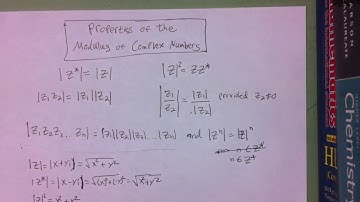 Properties of the
Modulus of Complex Numbers
|z*| = |z|
|z|² = zz*
|z₁z₂| = |z₁||z₂|
|z₁/z₂| = |z₁|/|z₂| provided z₂≠0
|z₁z₂z₃...zₙ| = |z₁||z₂||z₃|...|zₙ| and |zⁿ| = |z|ⁿ
n ∈ Z⁺
|z| = |x+yi| = √x²+y²
|z*| = |x-yi| = √(x)²+(-y)² = √x²+y²
|z|² = x²+y²
PEARSON
CALAURALEE
Chemistry